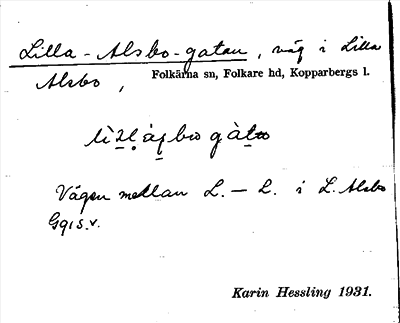 Lilla-Alsbo-gatan, väg i Lilla
Alsbo,
Folkärna sn, Folkare hd, Kopparbergs l.
Vägen mellan L. – L. i L. Alsbo
Karin Hessling 1931.